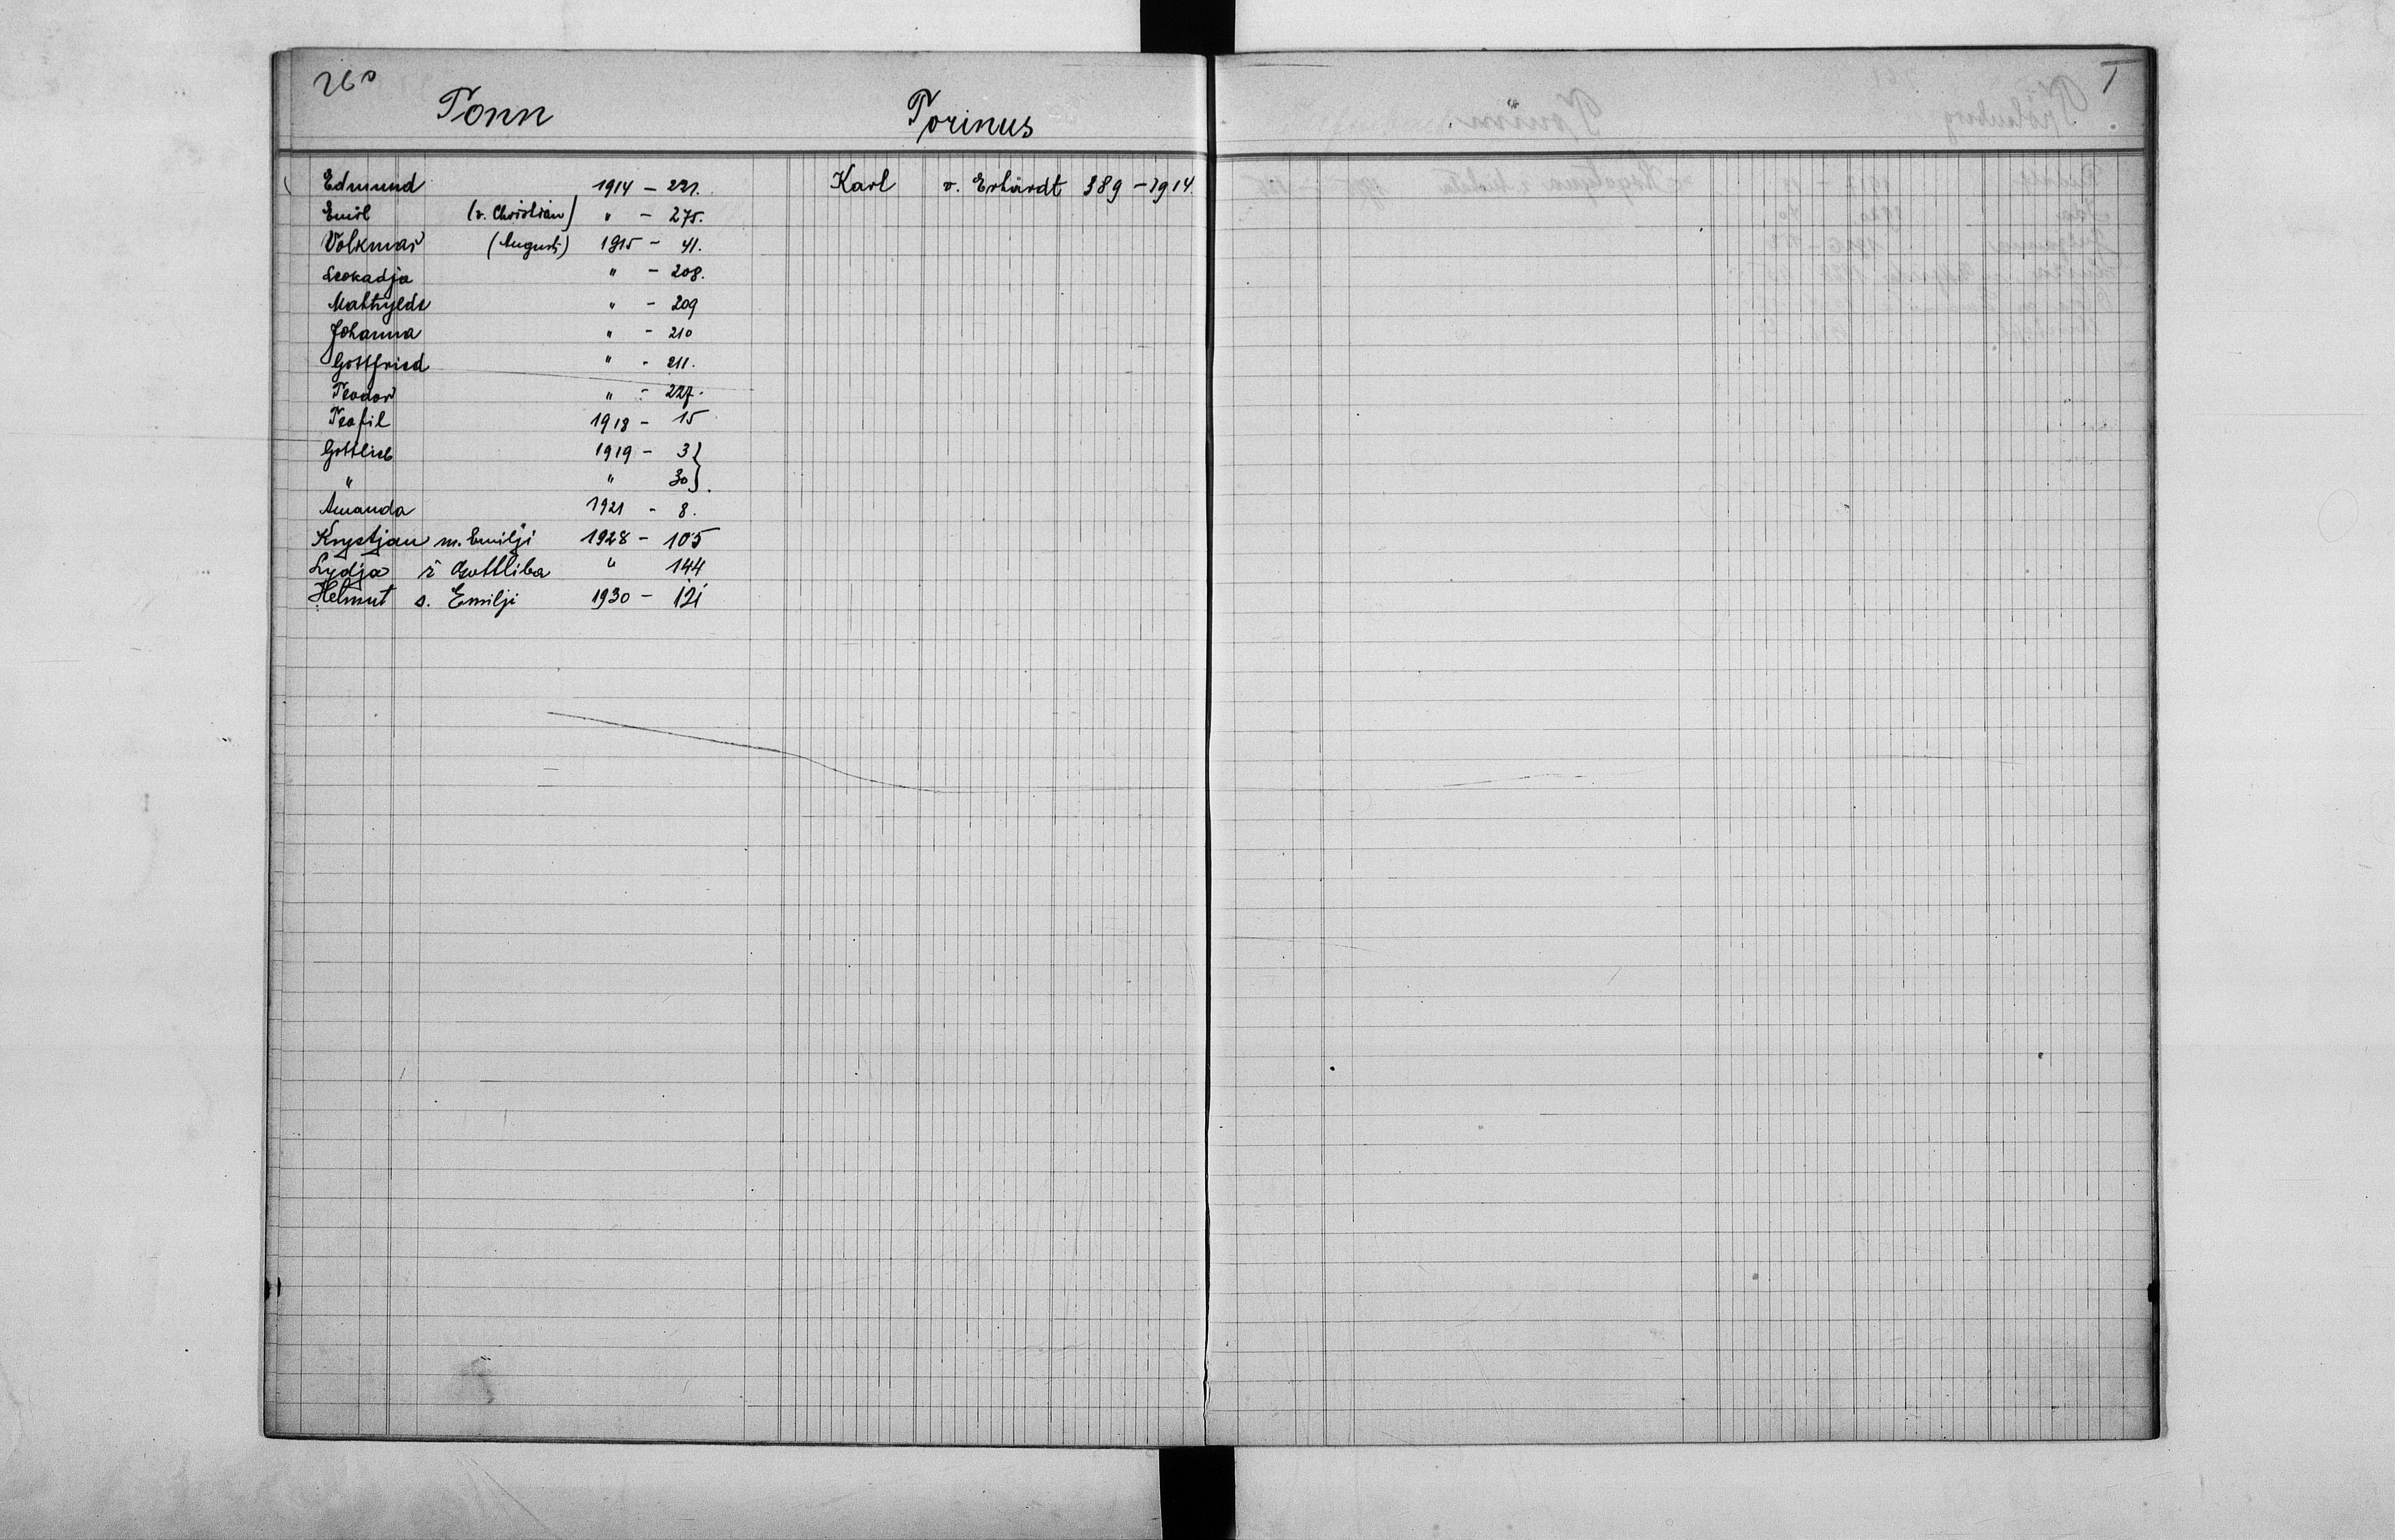 260
Tonn
Edmund 1914 - 221.
Emil (v. Christian) " - 275.
Volkmar (August) 1915 - 41.
Leokadja " - 208.
Mathylde " - 209
Johanna " - 210
Gottfried " - 211.
Teodor " - 227.
Teofil 1918 - 15
Gottlieb 1919 - 3}
" " 30}.
Amanda 1921 - 8.
Krystjan m. Emilji 1928 - 105
Lydja ż Gottliba " 144
Helmut s. Emilji 1930 - 121
Torinus
Karl v. Erhardt 389 - 1914.
T